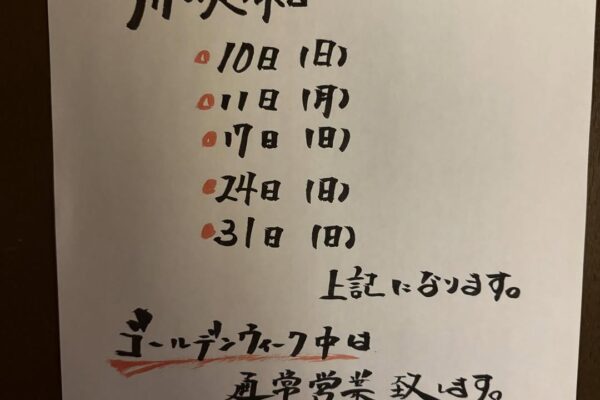 10日（日）
11日（月）
17日（日）
24日（日）
31日（日）
上記になります。
ゴールデンウィーク中は
通常営業致します。